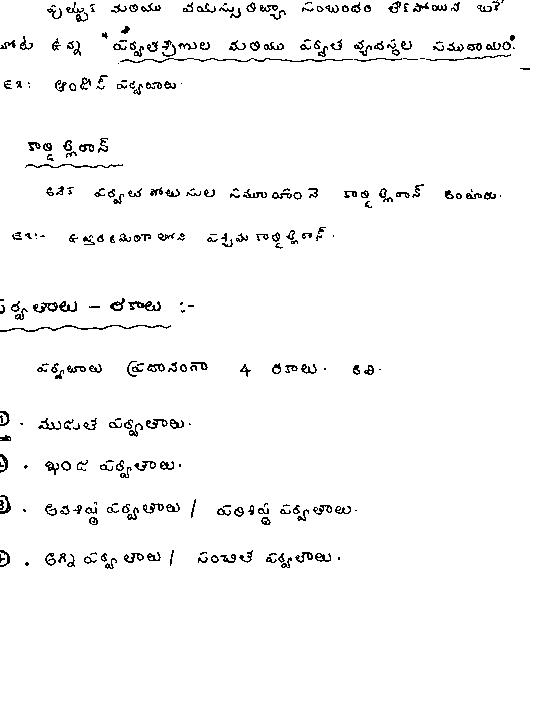 పుట్టుక మరియు వయస్సు రిత్యా సంబంధం లేకపోయిన ఒకే
చోట ఉన్న "పర్వతశ్రేణుల మరియు పర్వత వ్యవస్థల సముదాయం".
ఉదా: ఆండీస్ పర్వతాలు.
కార్డిల్లెరాన్
అనేక పర్వత సమూహం నె కార్డిల్లెరాన్ అంటారు.
ఉదా:- ఉత్తర అమెరికా లోని పశ్చిమ కార్డిల్లెరాన్.
పర్వతాలు – రకాలు :-
పర్వతాలు ప్రధానంగా 4 రకాలు. అవి.
① . ముడుత పర్వతాలు.
② . ఖండ పర్వతాలు.
③ . అవశిష్ట పర్వతాలు / పరిశిష్ట పర్వతాలు.
④ . అగ్ని పర్వతాలు / సంచిత పర్వతాలు.